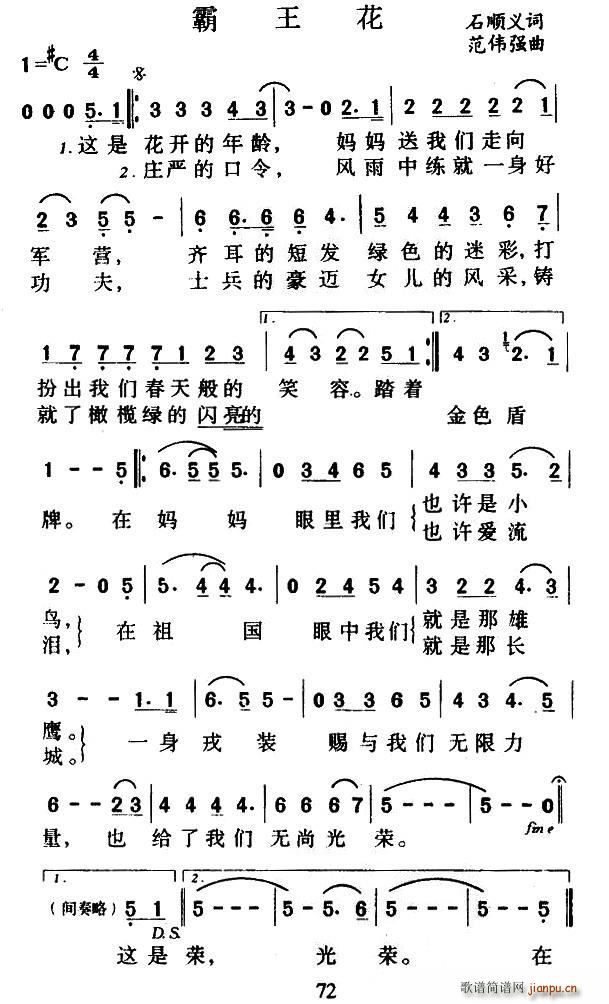 霸王花
石顺义词
范伟强曲
1=#C 4/4
0 0 0 5·1 3 3 3 4 3 3-0 2·1 2 2 2 2 2 1
1.这是 花开的年龄, 妈妈 送我们走向
2.庄严的口令, 风雨 中练就一身好
2 3 5 5 - 6 6·6 6 4· 5 4 4 3 6 7
军营, 齐耳的短发 绿色的迷彩,打
功夫, 士兵的豪迈 女儿的风采,铸
1. 2.
1 7 7 7 7 1 2 3 4 3 2 2 5 1 4 3 2· 1
扮出我们春天般的 笑容。踏着
就了橄榄绿的闪亮的 金色盾
1 - - 5 6· 5 5 5· 0 3 4 6 5 4 3 3 5· 2
牌。在妈妈 眼里我们 也许是小
也许爱流
2 - 0 5 5· 4 4 4· 0 2 4 5 4 3 2 2 4· 3
鸟, 在祖国 眼中我们 就是那雄
泪, 就是那长
3 - - 1·1 6· 5 5 - - 0 3 3 6 5 4 3 4· 5
鹰。 一身戎装 赐与我们无限力
城。
6 - - 2 3 4 4 4 4· 6 6 6 7 5 - - - 5 - - 0
量,也给了我们无尚光荣。
fine
1. 2.
(间奏略) 5 1 5 - - - 5 - - 5· 6 5 - - - 5 - - -
D.S.
这是荣, 光荣。 在
72
歌谱简谱网
jianpu.cn